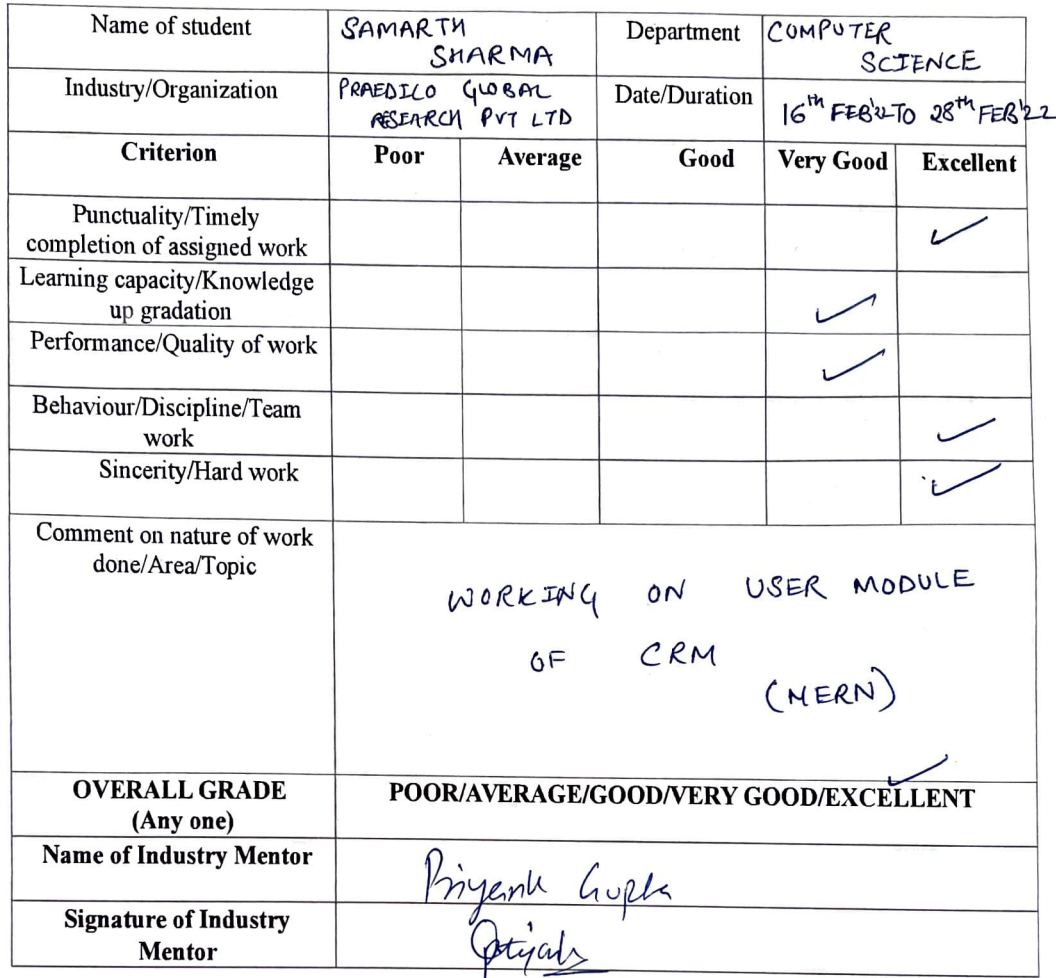 Name of student SAMARTH Department COMPUTER
SHARMA SCIENCE
Industry/Organization PRAEDICO GLOBAL Date/Duration 16th FEB'22 TO 28th FEB'22
RESEARCH PVT LTD
Criterion Poor Average Good Very Good Excellent
Punctuality/Timely
completion of assigned work
Learning capacity/Knowledge
up gradation
Performance/Quality of work
Behaviour/Discipline/Team
work
Sincerity/Hard work
Comment on nature of work
done/Area/Topic
WORKING ON USER MODULE
OF CRM
(MERN)
OVERALL GRADE POOR/AVERAGE/GOOD/VERY GOOD/EXCELLENT
(Any one)
Name of Industry Mentor Priyank Gupta
Signature of Industry
Mentor